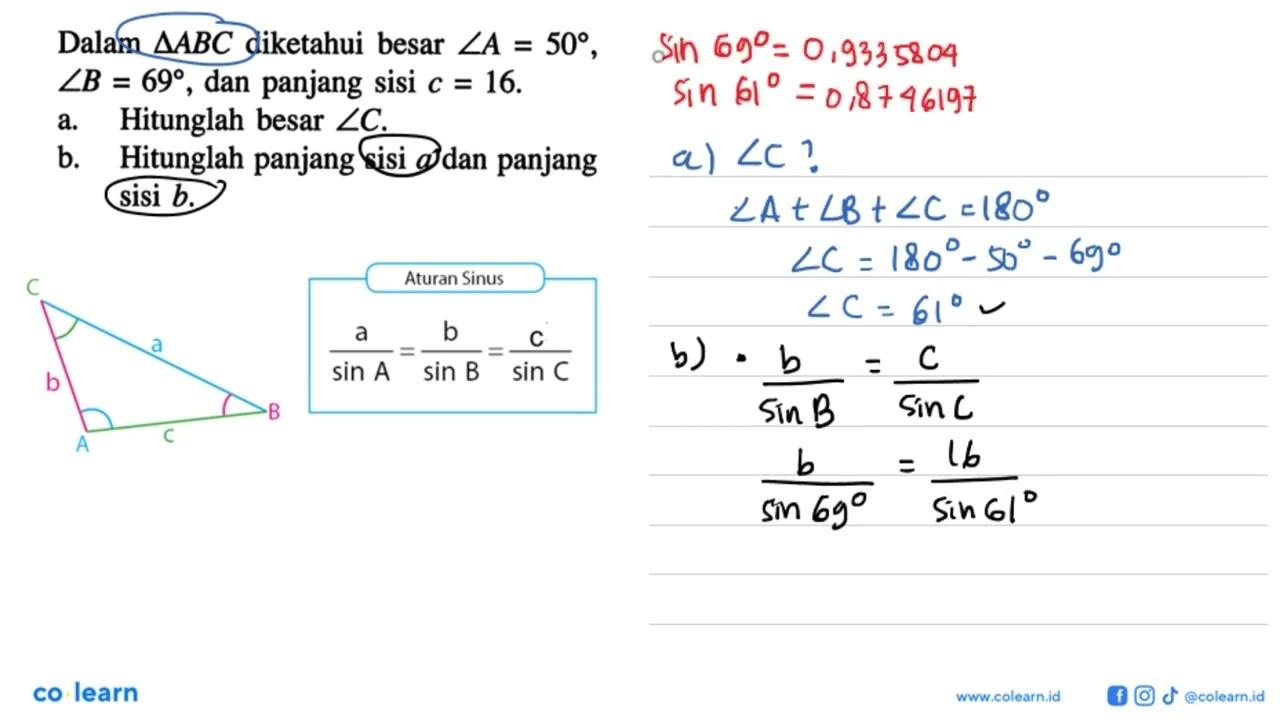 Dalam ΔABC diketahui besar ∠A = 50°,
∠B = 69°, dan panjang sisi c = 16.
a. Hitunglah besar ∠C.
b. Hitunglah panjang sisi a dan panjang
sisi b.
C
a
b
B
A
c
Aturan Sinus
a/sin A = b/sin B = c/sin C
sin 69° = 0,9335804
sin 61° = 0,8746197
a) ∠C ?
∠A + ∠B + ∠C = 180°
∠C = 180° - 50° - 69°
∠C = 61° ✓
b) • b/sin B = c/sin C
b/sin 69° = 16/sin 61°
co learn
www.colearn.id
@colearn.id